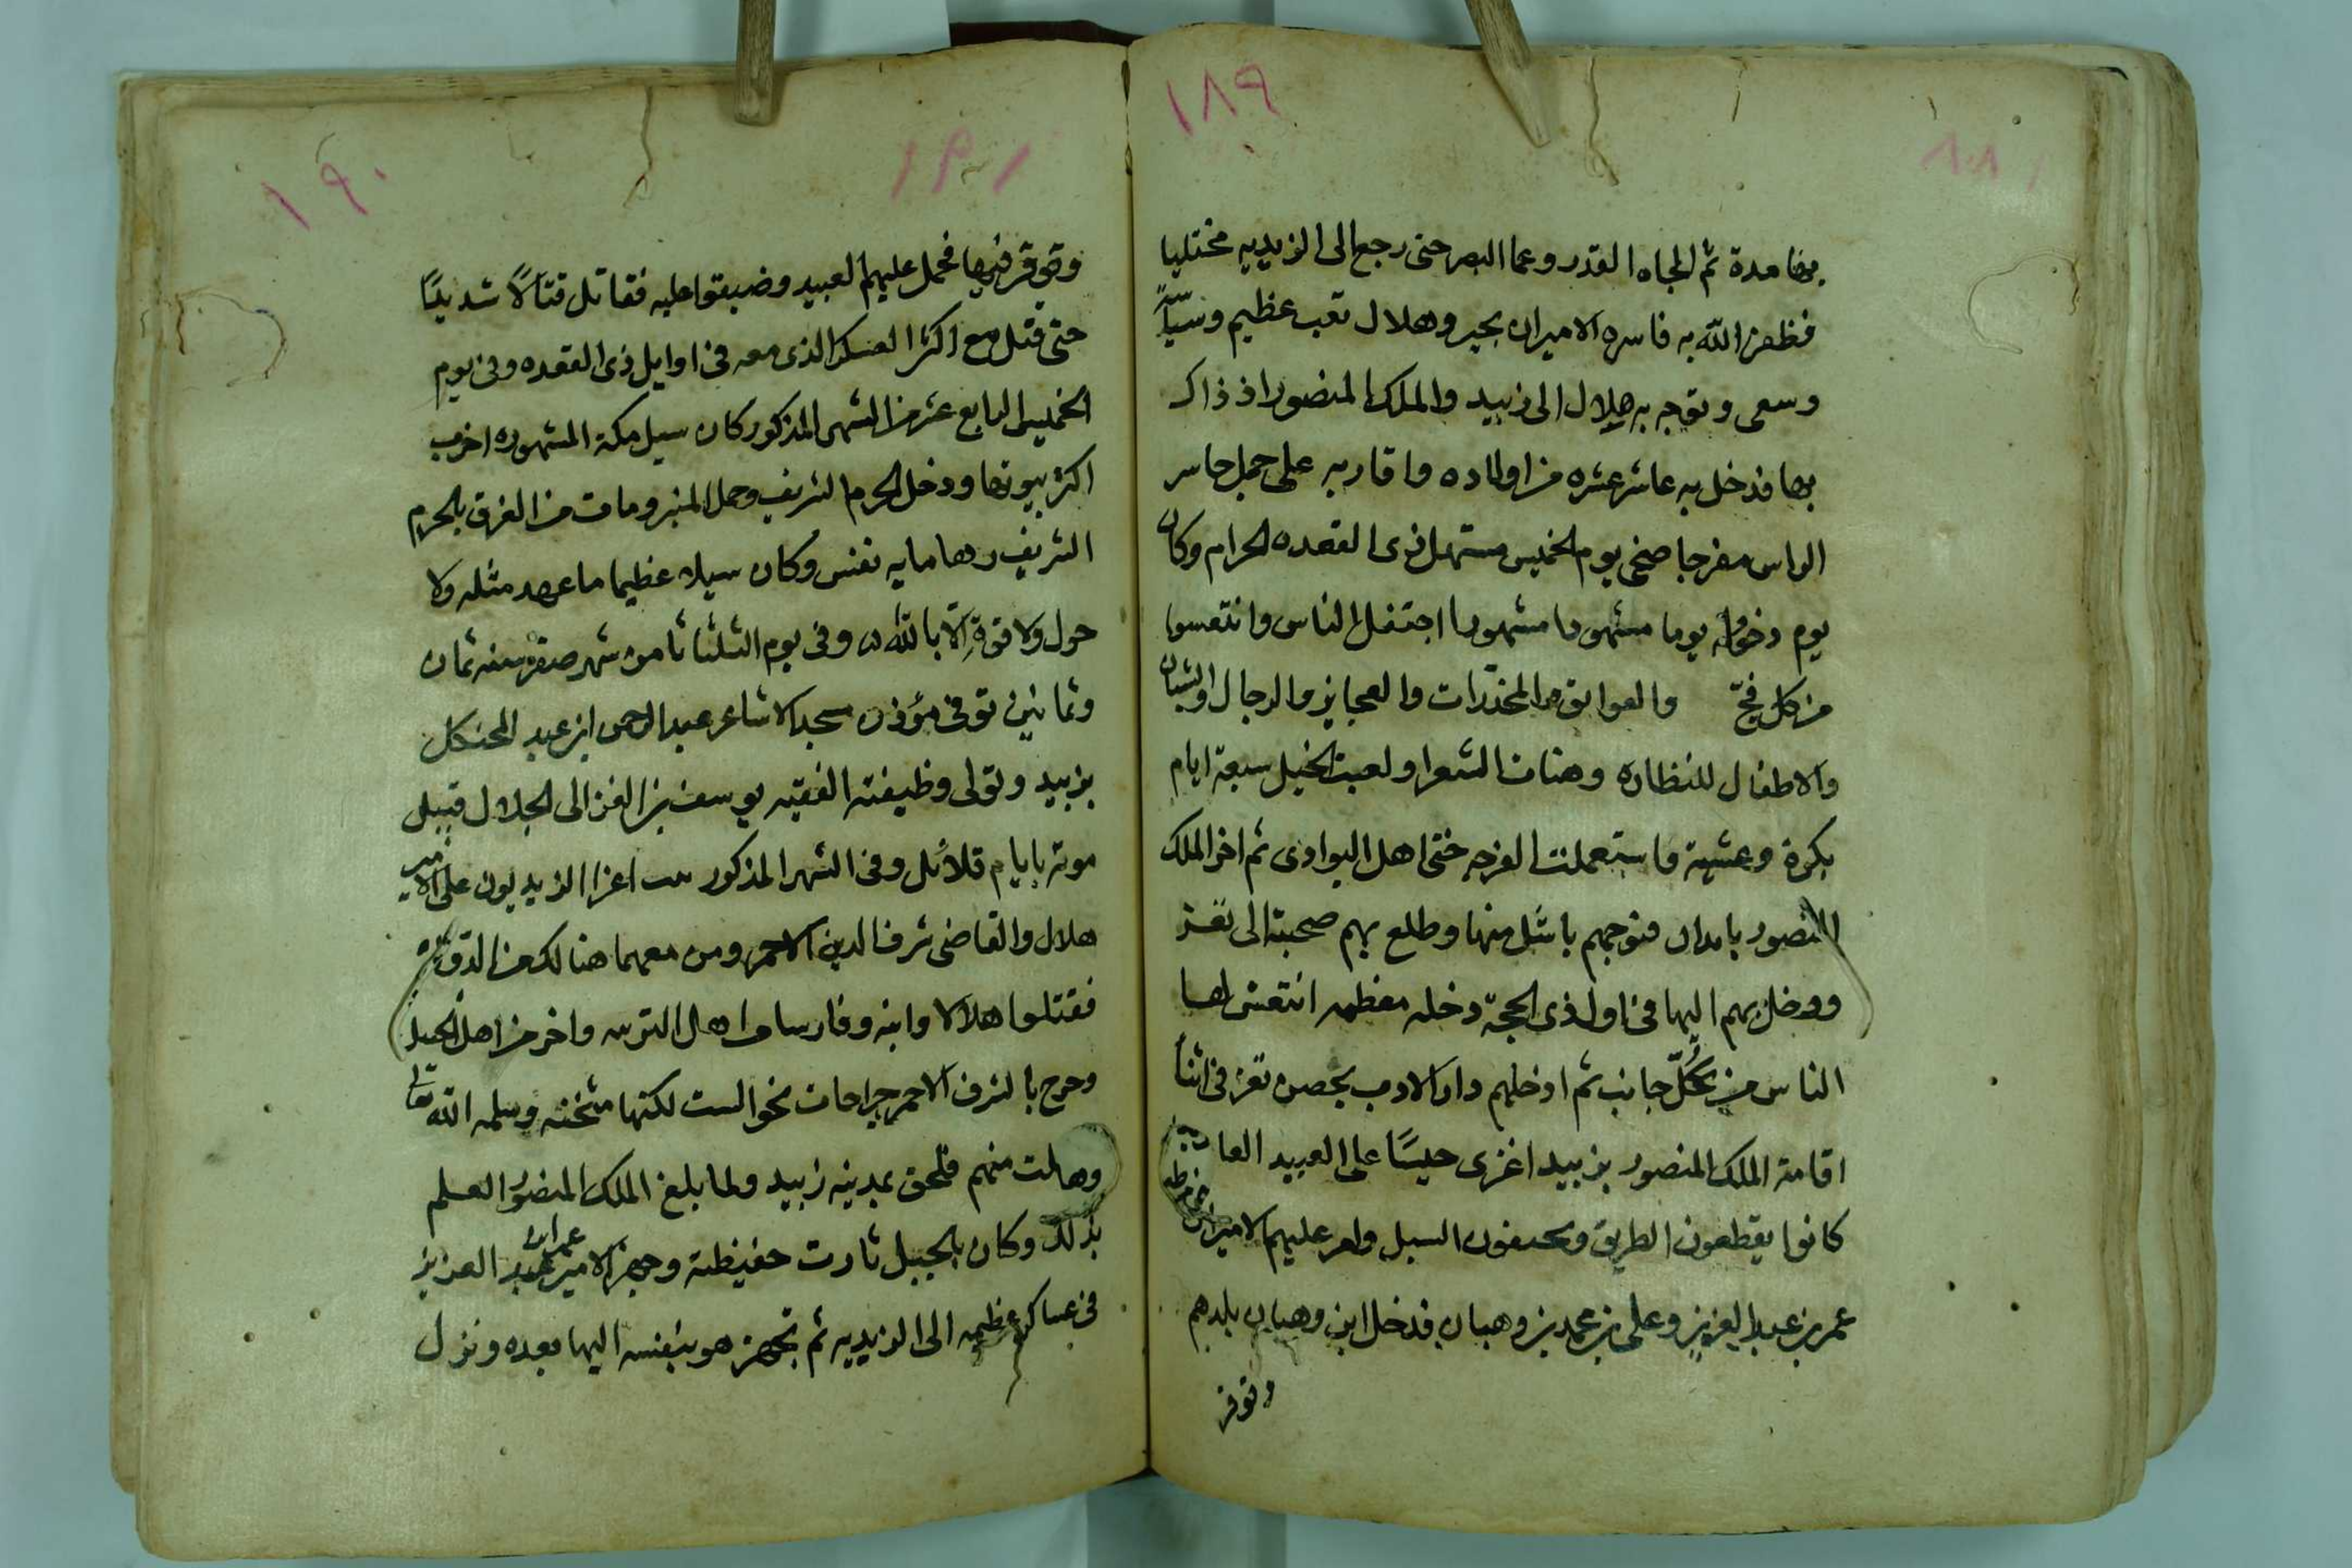 ١٨٩
بها مدة ثم الجاه القدر وعما البصر حتى رجع الى الزيديه مختليا
فظفر الله به فاسره الاميران بجير وهلال تعب عظيم
وسعى وتوجه به هلال الى زبيد والملك المنصور اذ ذاك
بها فدخل به عاشر عشره من اولاده واقاربه على جمل حاسر
الراس مفرجا ضحى يوم الخميس مستهل ذى القعده الحرام وكان
يوم دخوله يوما مشهودا مشهورا اجتفل الناس وانتعسوا
من كل فج والعواتق والمخدرات والعجايز والرجال والشبان
والاطفال للنظاره وهنات الشعرا ولعبت الخيل سبعة ايام
بكرة وعشية واستعملت الفرجه حتى اهل البوادى ثم اخر الملك
المنصور بامدان فتوجهم باشل منها وطلع بهم صحبته الى تعز
ودخل بهم اليها فى اول ذى الحجة دخله معظمه انتعش لها
الناس من كل جانب ثم ادخلهم دار الادب بحصن تعز فى اثنا
اقامة الملك المنصور بزبيد اغزى جيسًا على العبيد
كانوا يقطعون الطريق السبل وامر عليهم الاميران
عمر بن عبد العزيز وعلى بن محمد بن وهبان فدخل ابن وهبان بلدهم
وتوفر
١٩٠
وتوقر فيها فحمل عليهم العبيد وضيقوا عليه فقاتل قتالًا شديدًا
حتى قتل مع اكثر العسكر الذى معه فى اوايل ذى القعده وفى يوم
الخميس الرابع عشر من الشهر المذكور كان سيل مكة المشهوره اخرب
اكثر بيوتها ودخل الحرم الشريف وحمل المنبر ومات من الغرق بالحرم
الشريف رها مايه نفس وكان سيلا عظيما ما عهد مثله ولا
حول ولا قوة الا بالله وفى يوم الثلثا ثامن شهر صفر سنه ثمان
وثمانين توفى مؤذن مسجد الاشاعر عبد الرحمن ابن عبد
بزبيد وتولى وظيفته الفقيه يوسف بن الغزالى الجلال قبيل
موته بايام قلائل وفى الشهر المذكور اغرا الزيديون على الامير
هلال والقاضى شرف الدين الاحمر ومن معهما هنالك من
فقتلوا هلالا وابنه وفارسا من اهل التربيه واخر من اهل الجبل
وجرح بالشرف الاحمر جراحات نحو الست لكنها مثخنه وسلمه الله تعالى
منهم فلحق بمدينه زبيد ولما بلغ الملك المنصور العلم
بذلك وكان بالجبل ثارت حفيظته وجهز الامير عمر بن عبد العزيز
فى عساكر عظيمه الى الزيديه ثم تجهز هو بنفسه اليها بعده ونزل